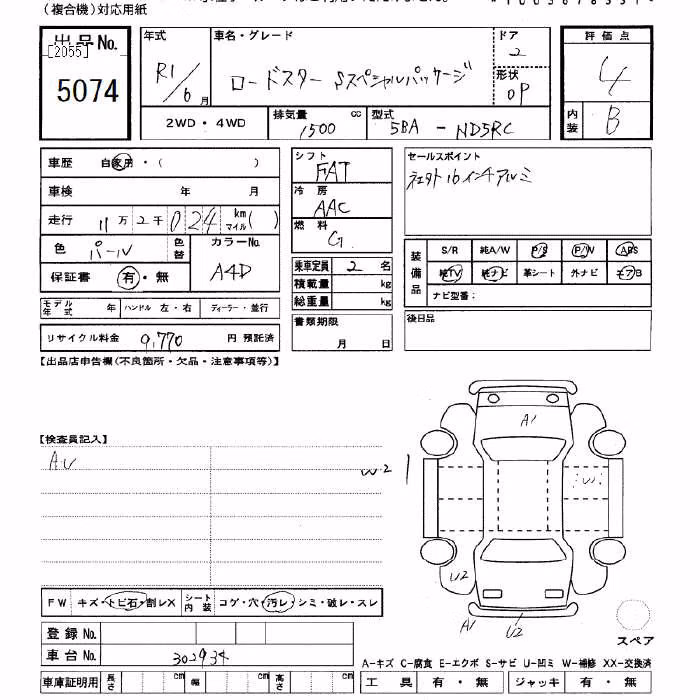 (複合機)対応用紙
出品No. [2055] 5074
年式 R1/6月
車名・グレード ロードスター Sスペシャルパッケージ
ドア 2
形状 OP
評価点 4
内装 B
2WD・4WD
排気量 1500 cc
型式 5BA - ND5RC
車歴 自家用・( )
車検 年 月
走行 11万2千024 km マイル( )
色 パール 色替
カラーNo. A4D
保証書 有・無
モデル年式 年 ハンドル 左・右 ディーラー・並行
リサイクル料金 9,770 円 預託済
シフト FAT
冷房 AAC
燃料 G
乗車定員 2 名
積載量 kg
総重量 kg
書類期限 月 日
セールスポイント
16インチアルミ
装備品 S/R 純A/W P/S P/W ABS
純TV 純ナビ 革シート 外ナビ エアB
ナビ型番:
後日品
【出品店申告欄(不良箇所・欠品・注意事項等)】
【検査員記入】
AU
W2
A1
W
U2
A1
U2
スペア
FW キズ・トビ石・割レX シート内装 コゲ・穴・汚レ・シミ・破レ・スレ
登録No.
車台No. 302934
車庫証明用 長さ cm 幅 cm 高さ cm
A-キズ C-腐食 E-エクボ S-サビ U-凹ミ W-補修 XX-交換済
工具 有・無 ジャッキ 有・無